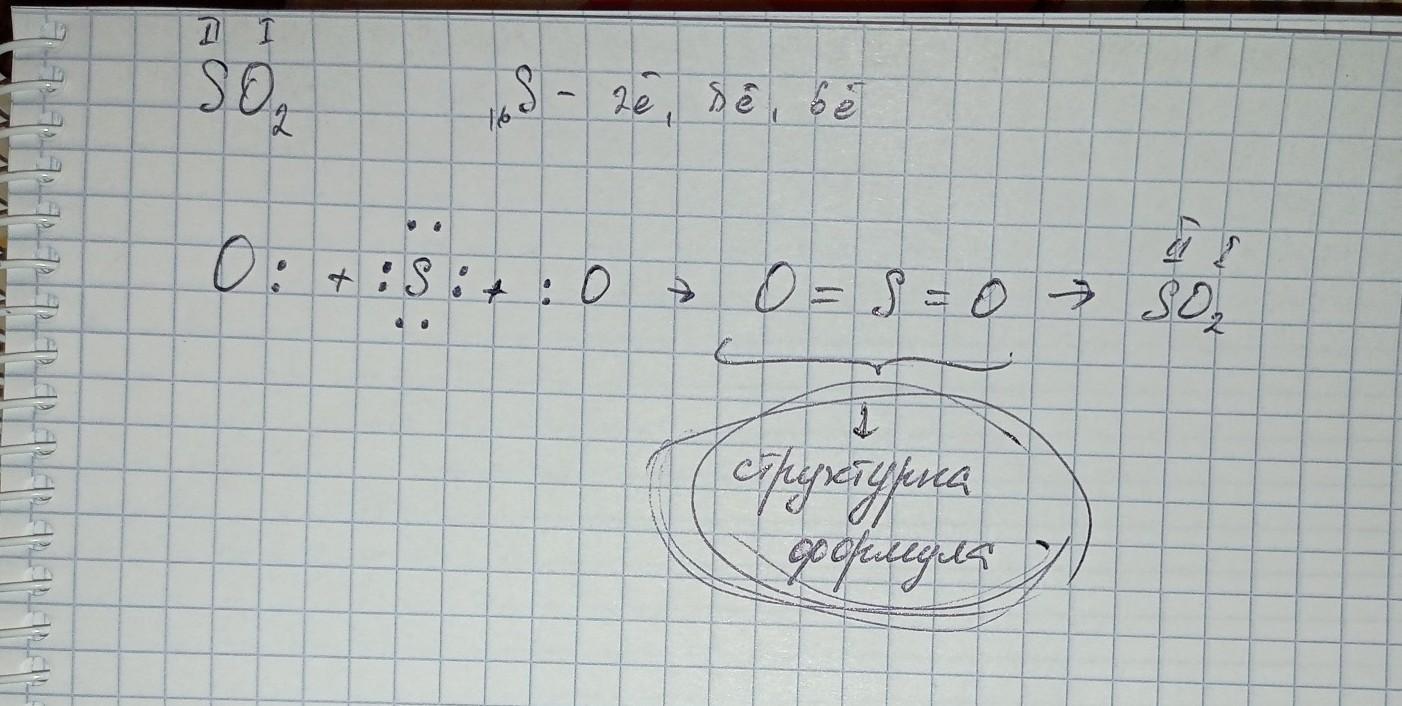 II I
SO₂ ₁₆S - 2ē, 8ē, 6ē
O: + :S̤̈: + :O → O = S = O → SO₂
II I
↓
структурна
формула